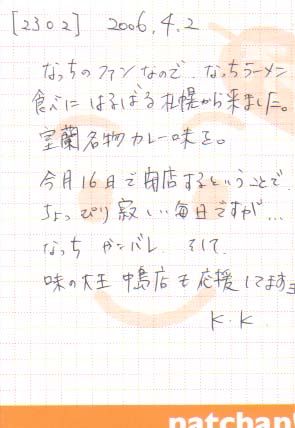 [2302] 2006.4.2
なっちのファンなので、なっちラーメン
食べに はるばる札幌から来ました。
室蘭名物カレー味を。
今月16日で閉店するということで、
ちょっぴり寂しい毎日ですが…
なっち ガンバレ、そして、
味の大王 中島店も応援してます
K.K
patchan